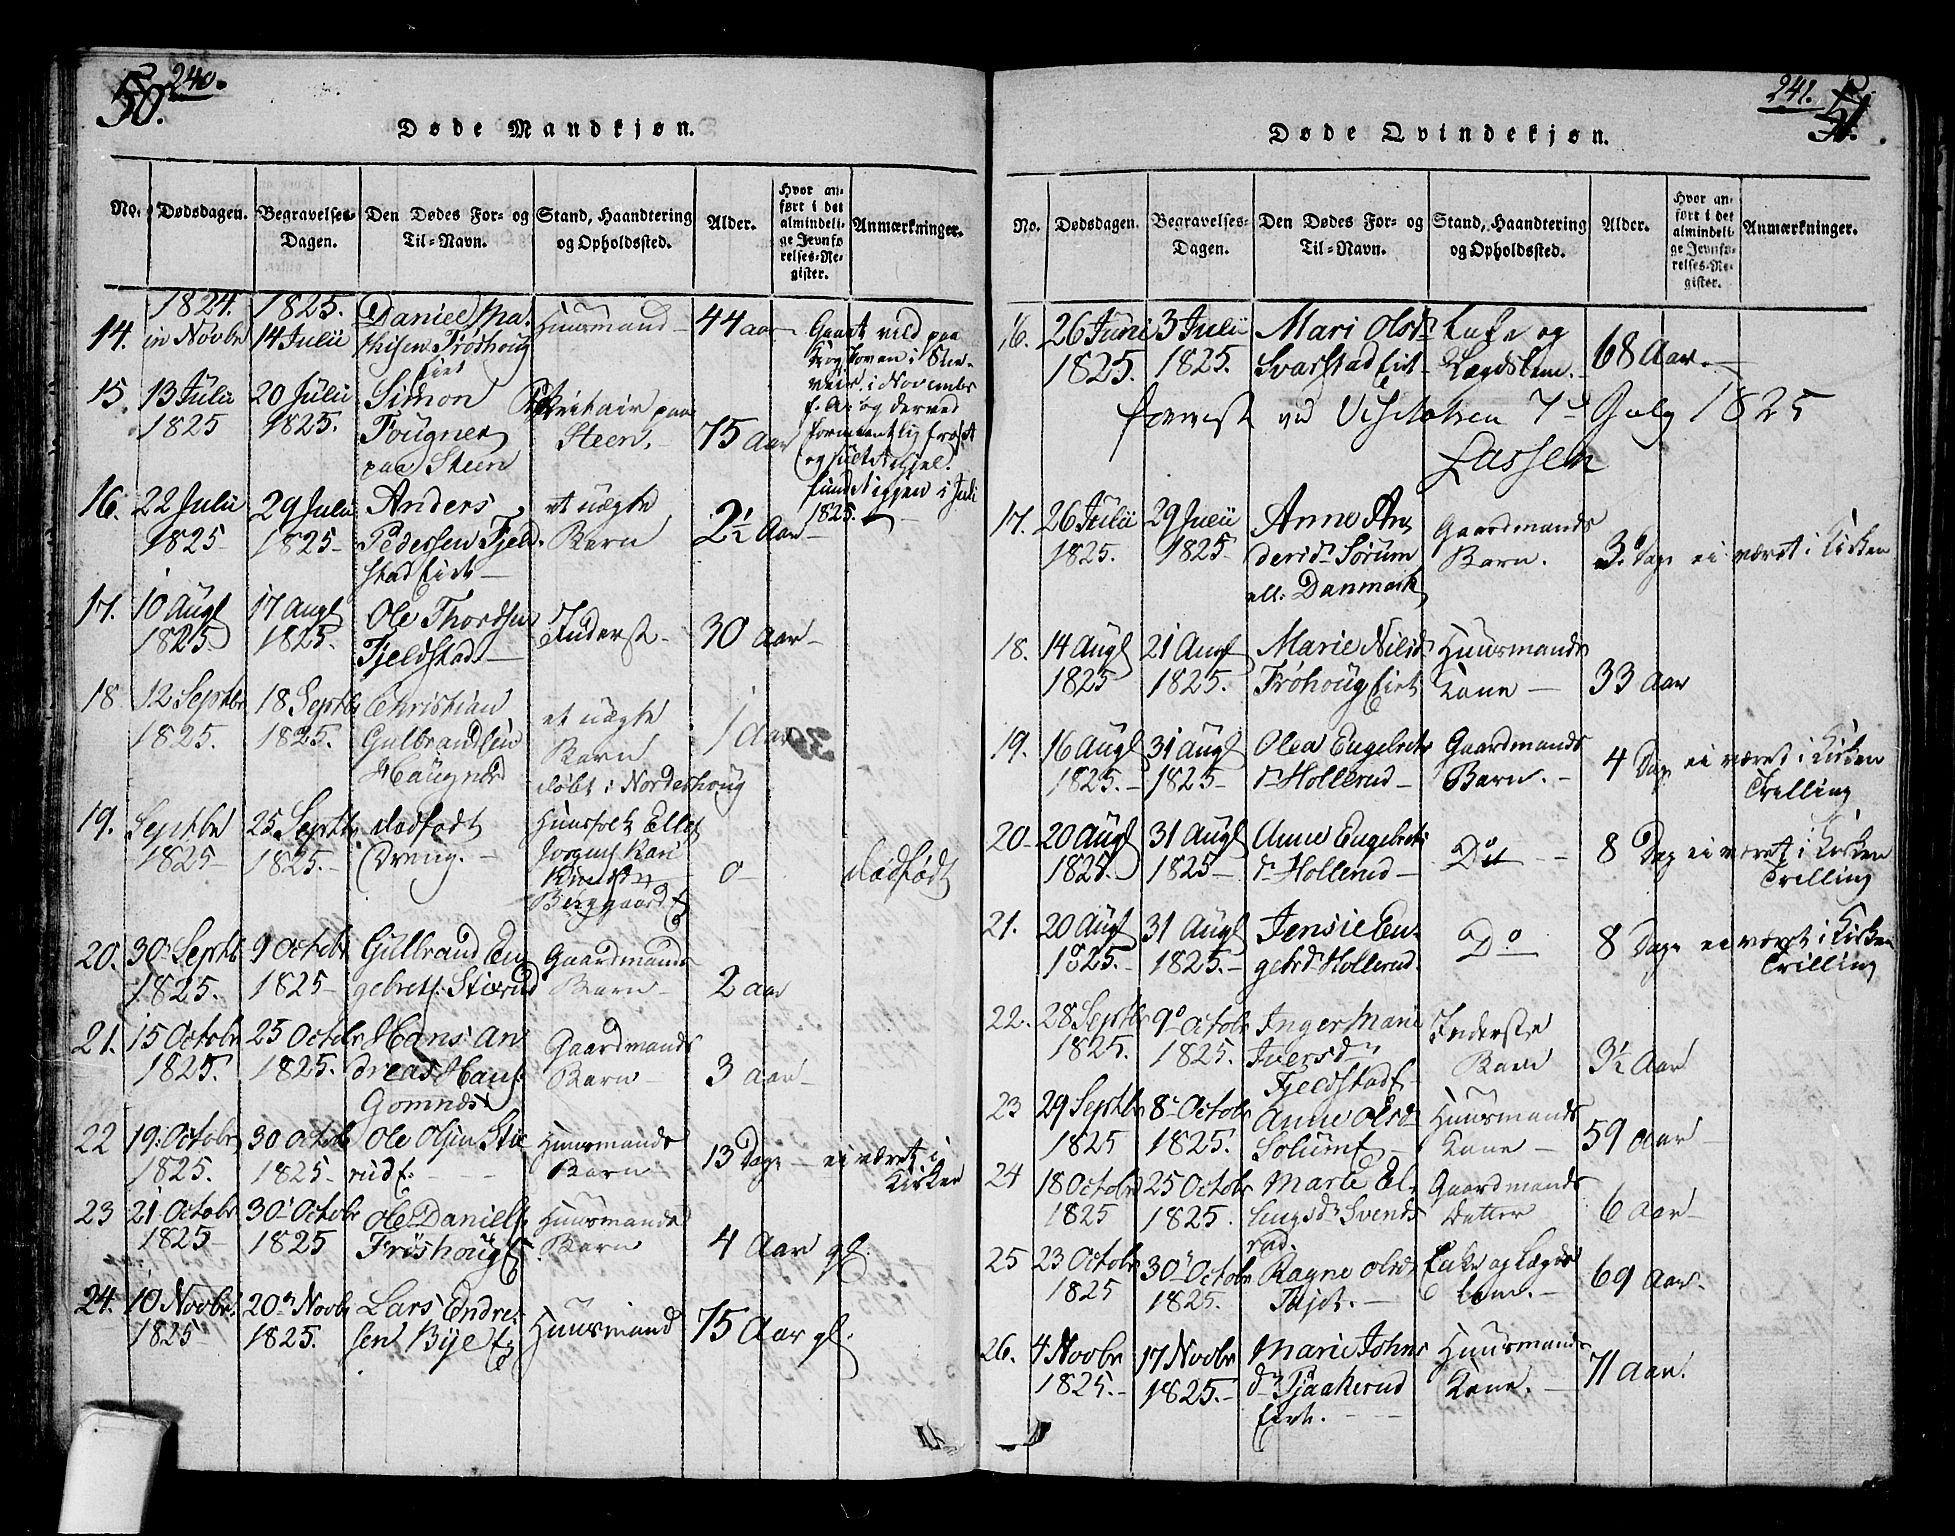 240.
50.
Døde Mandkjøn.
No.
Dødsdagen.
Begravelses-
Dagen.
Den Dødes For- og
Til-Navn.
Stand, Haandtering
og Opholdssted.
Alder.
Hvor an-
ført i det
almindeli-
ge Jevnfø
relses-Re-
gister.
Anmærkninger.
14.
1824.
in Novbr
1825.
14 Julii
Daniel Ma-
thisen Frøshoug
Eiet
Huusmand
44 aar
Gaaet vild paa
Krogskoven i
i November
f. A. og derved
formeentlig frosset
og sultet ihjel.
funden igjen i Juli
1825.
15.
13 Julii
1825
20 Julii
1825.
Simon
Fougner
paa Steen
paa
Steen.
75 Aar
16.
22 Julii
1825
29 Julii
1825
Anders
Pedersen Fjeld-
stad Eiet
et uægte
Barn
2½ Aar
17.
10 Augl
1825
17 Augl
1825.
Ole Thordsen
Fjeldstad
Inderst
30 Aar
18
12 Septbr
1825.
18 Septbr
1825.
Christian
Gulbrandsen
Haugnes
et uægte
Barn
døbt i Norderhoug
1 Aar
19.
Septbr
1825
25 Septbr
1825.
dødfødt
Dreng.
Huusfolk Ellef
Jørgens. Kari
Bürggaard E
0
dødfødt
20.
30 Septbr
1825.
9 Octobr
1825
Gulbrand En-
gebrets. Stixrud
Gaardmands
Barn
2 aar
21.
15 Octobr
1825.
25 Octobr
1825.
Hans An
dreas Hans.
Gomnes
Gaardmands
Barn
3 aar
22
19. Octobr
1825.
30 Octob
1825
Ole Olsen Stix
rud E.
Huusmands
Barn
13 Dage
ei været i
Kirken
23
21. Octobr
1825
30 Octobr
1825
Ole Daniels.
Frøshoug E.
Huusmands
Barn
4 Aar gl.
24.
10 Novbr.
1825
20 Novbr
1825.
Lars Endre-
sen Bye E.
Huusmand
75 Aar gl.
241.
51.
Døde Qvindekjøn.
No.
Dødsdagen.
Begravelses-
Dagen.
Den Dødes For- og
Til-Navn.
Stand, Haandtering
og Opholdssted.
Alder.
Hvor an-
ført i det
almindeli-
ge Jevnfø-
relses-Re-
gister.
Anmærkninger.
16.
26 Juni
1825.
3 Julii
1825.
Mari Olsdr
Svarstad Eiet
Enke og
Lægdslem.
68 Aar.
forevist ved Visitatsen 7d July 1825
Lassen
17.
26 Julii
1825.
29 Julii
1825
Anne An-
dersdr Sørum
ell. Danmark
Gaardmands
Barn.
3 Dage
ei været i Kirken
18.
14 Augl
1825
21 Augl
1825.
Marie Nilsdr
Frøhoug Eiet
Huusmands
Kone
33 Aar
19.
16 Augl
1825.
31 Augl
1825
Olea Engebrets
dr Hollerud
Gaardmands
Barn.
4 Dage
ei været i Kirken
Trelling
20
20 Augl
1825.
31 Augl
1825
Anne Engebrets
dr Hollerud
Do
8 Dage
ei været i Kirken
Trilling
21.
20 Augl
1825.
31 Augl
1825.
Jensie En-
gebrdr Hollerud.
Do
8 Dage
ei været i Kirken
Trilling
22.
28 Septbr
1825.
9 Octobr
1825.
Inger Marie
Iversdr
Fjeldstad E.
Inderste
Barn
3½ Aar
23
29 Septbr
1825
8 Octobr
1825.
Anne Olsdr
Solum E.
Huusmands
Kone
59 Aar
24
18 Octobr
1825
25 Octobr
1825.
Marte El-
lingsdr Svends
rud.
Gaardmands
Datter
6 Aar
25
23 Octobr
1825
30 Octobr
1825.
Ragne Olsdr
Enke og Lægds
Lem.
69 Aar.
26.
4 Novbr
1825.
17 Novbr
1825.
Marie Johns
dr Tjaakerud
Eiet.
Huusmands
Kone.
71 Aar.